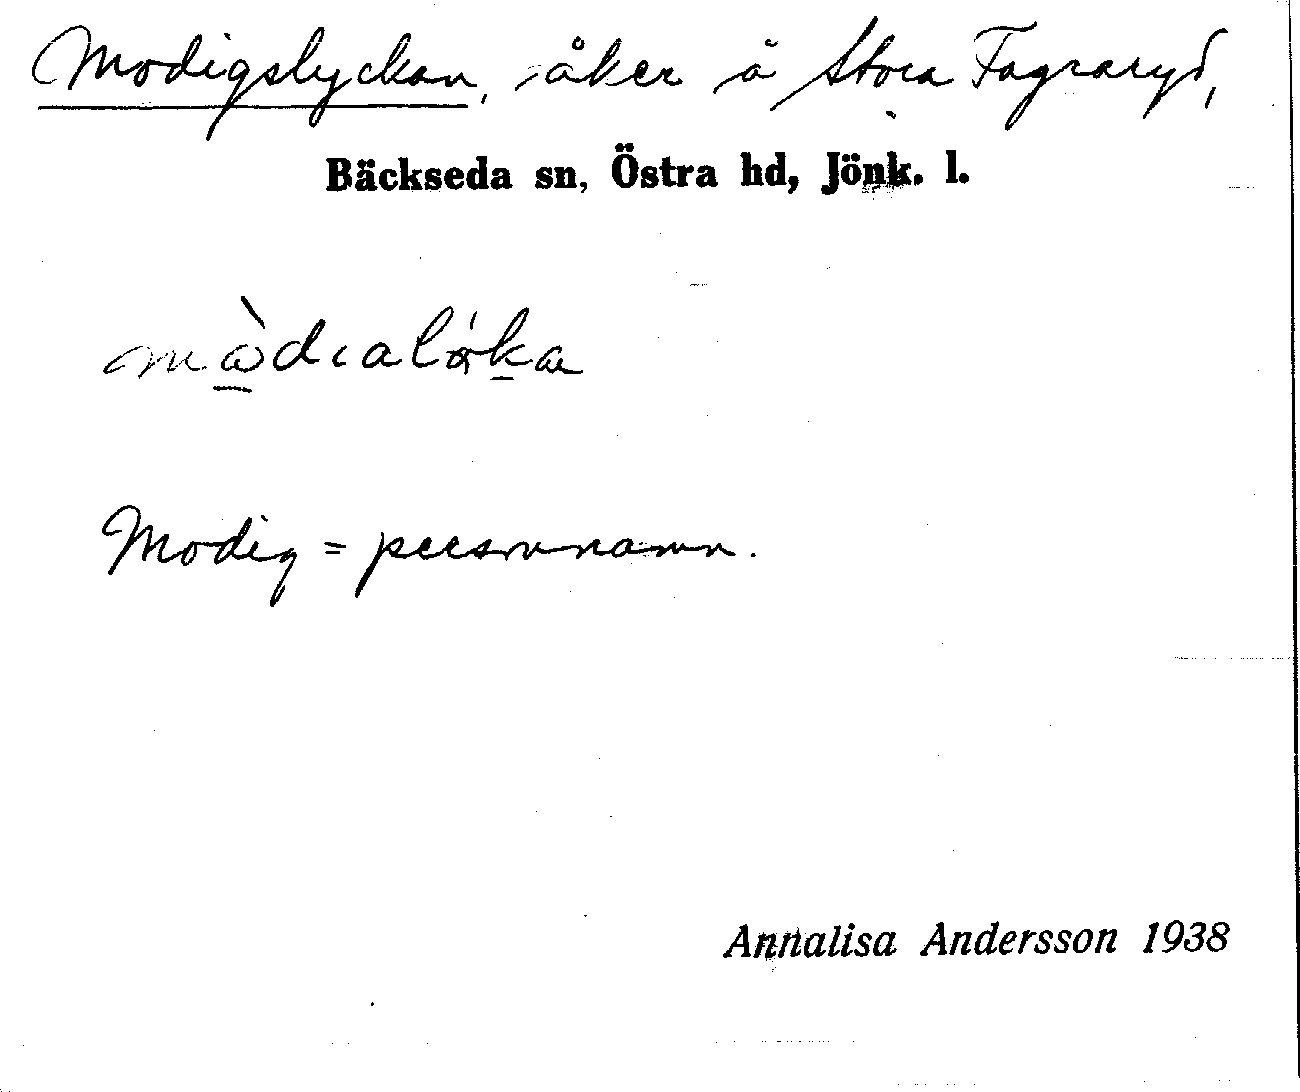 Modigslyckan, åker å Stora Fagraryd,
Bäckseda sn, Östra hd, Jönk. l.
Modig = personnamn.
Annalisa Andersson 1938